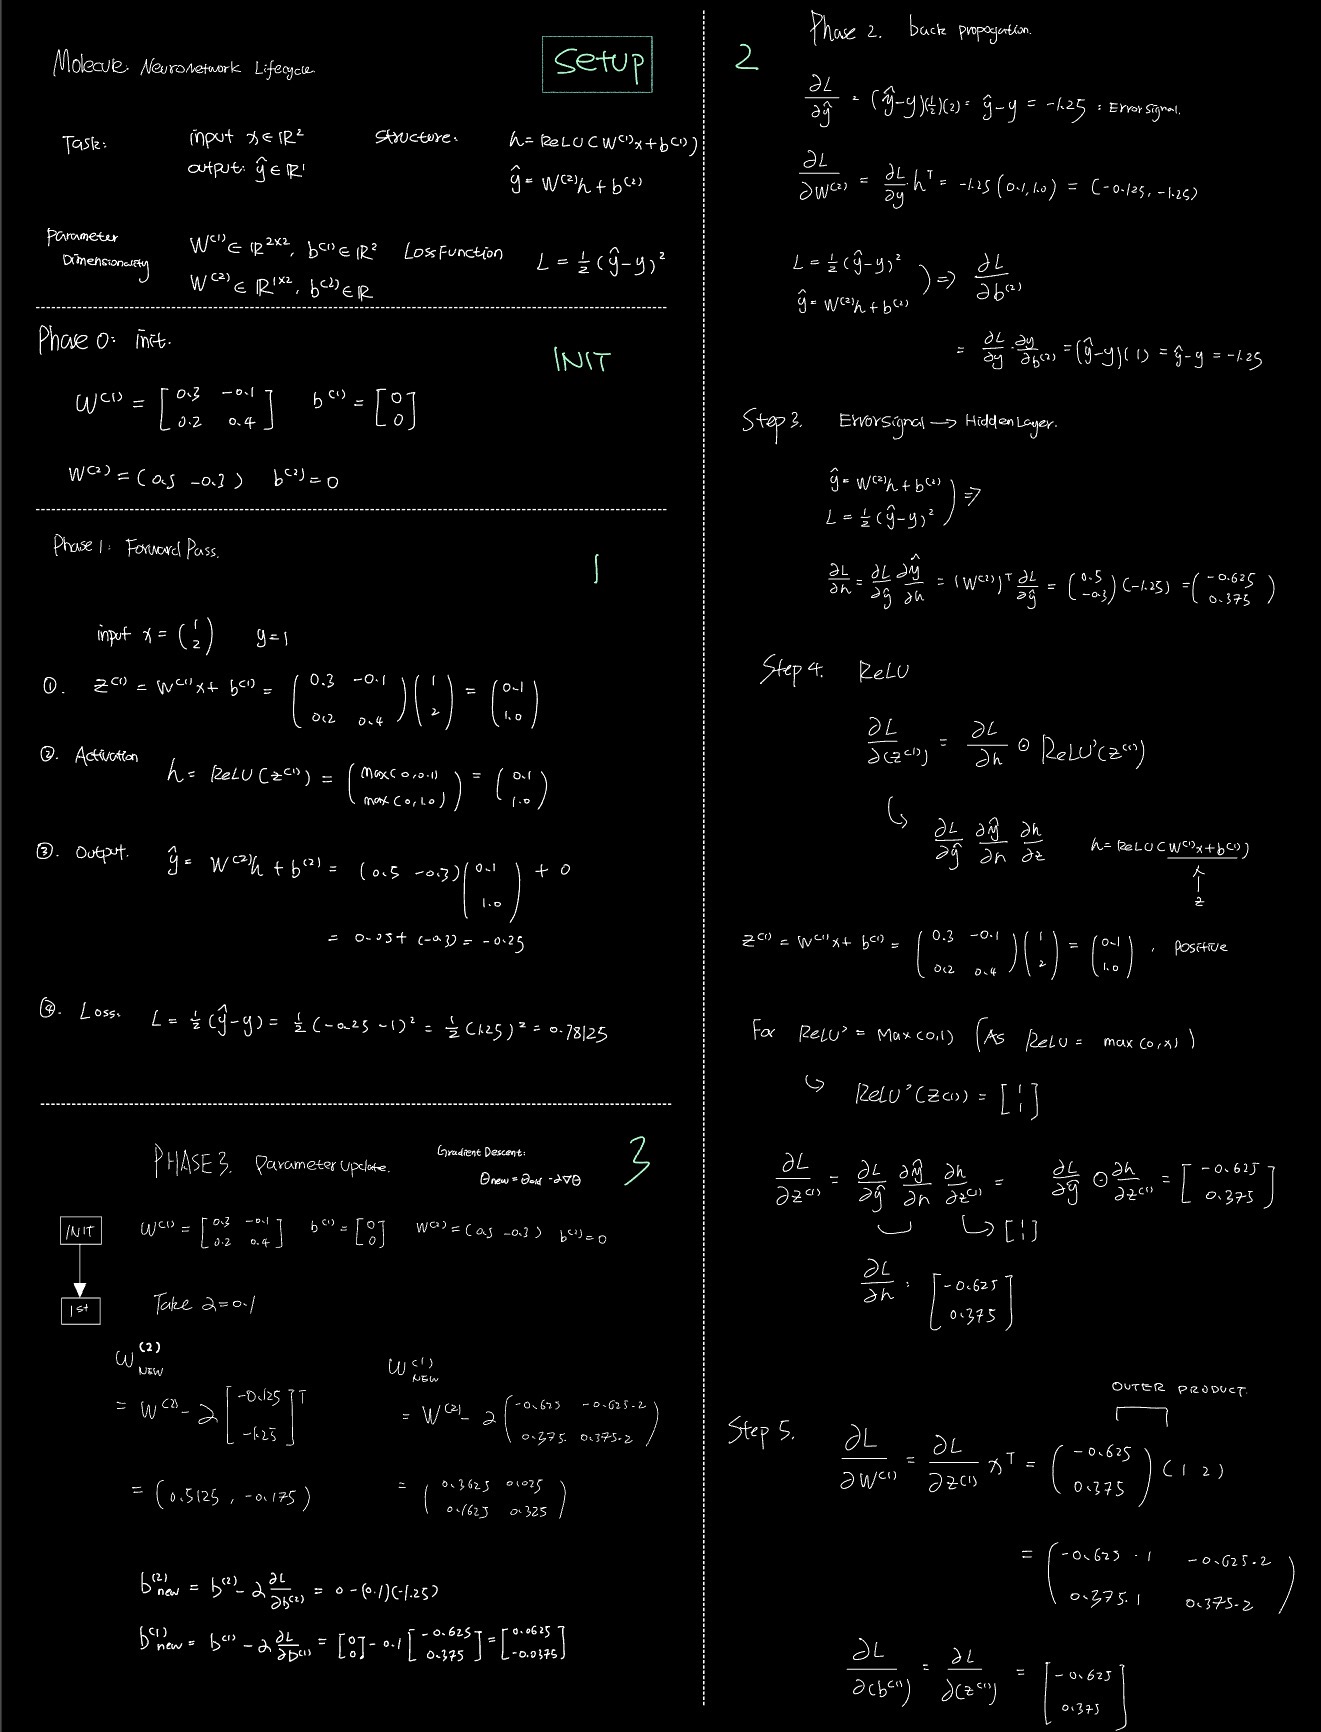 Molecule: Neuronetwork Lifecycle
Setup
Task: input x ∈ ℝ² Structure: h = ReLU(W⁽¹⁾x + b⁽¹⁾)
output: ŷ ∈ ℝ¹ ŷ = W⁽²⁾h + b⁽²⁾
Parameter Dimensionality W⁽¹⁾ ∈ ℝ²ˣ², b⁽¹⁾ ∈ ℝ² Loss Function L = ½(ŷ-y)²
W⁽²⁾ ∈ ℝ¹ˣ², b⁽²⁾ ∈ ℝ
Phase 0: init.
INIT
W⁽¹⁾ = [0.3 -0.1; 0.2 0.4] b⁽¹⁾ = [0; 0]
W⁽²⁾ = (0.5 -0.3) b⁽²⁾ = 0
Phase 1: Forward Pass.
1
input x = (1; 2) y = 1
①. z⁽¹⁾ = W⁽¹⁾x + b⁽¹⁾ = (0.3 -0.1; 0.2 0.4)(1; 2) = (0.1; 1.0)
②. Activation h = ReLU(z⁽¹⁾) = (max(0,0.1); max(0,1.0)) = (0.1; 1.0)
③. Output. ŷ = W⁽²⁾h + b⁽²⁾ = (0.5 -0.3)(0.1; 1.0) + 0
= 0.05 + (-0.3) = -0.25
④. Loss. L = ½(ŷ-y) = ½(-0.25-1)² = ½(1.25)² = 0.78125
PHASE 3. Parameter Update.
Gradient Descent:
θnew = θold - α∇θ
3
INIT
W⁽¹⁾ = [0.3 -0.1; 0.2 0.4] b⁽¹⁾ = [0; 0] W⁽²⁾ = (0.5 -0.3) b⁽²⁾ = 0
1st
Take α = 0.1
W⁽²⁾NEW
= W⁽²⁾ - α[-0.125; -1.25]ᵀ
= (0.5125, -0.175)
W⁽¹⁾NEW
= W⁽²⁾ - α(-0.625 -0.625·2; 0.375· 0.375·2)
= (0.3625 0.025; 0.1625 0.325)
b⁽²⁾new = b⁽²⁾ - α ∂L/∂b⁽²⁾ = 0 - (0.1)(-1.25)
b⁽¹⁾new = b⁽¹⁾ - α ∂L/∂b⁽¹⁾ = [0; 0] - 0.1[-0.625; 0.375] = [0.0625; -0.0375]
2
Phase 2. back propogation.
∂L/∂ŷ = (ŷ-y)(½)(2) = ŷ-y = -1.25 : Error Signal.
∂L/∂W⁽²⁾ = ∂L/∂y · hᵀ = -1.25(0.1, 1.0) = (-0.125, -1.25)
L = ½(ŷ-y)²
ŷ = W⁽²⁾h + b⁽²⁾ ) ⇒ ∂L/∂b⁽²⁾
= ∂L/∂y · ∂y/∂b⁽²⁾ = (ŷ-y)(1) = ŷ-y = -1.25
Step 3. Error Signal → Hidden Layer.
ŷ = W⁽²⁾h + b⁽²⁾
L = ½(ŷ-y)² ) ⇒
∂L/∂h = ∂L/∂ŷ ∂ŷ/∂h = (W⁽²⁾)ᵀ ∂L/∂ŷ = (0.5; -0.3)(-1.25) = (-0.625; 0.375)
Step 4. ReLU
∂L/∂(z⁽¹⁾) = ∂L/∂h ⊙ ReLU'(z⁽¹⁾)
↳ ∂L/∂ŷ ∂ŷ/∂h ∂h/∂z h = ReLU(W⁽¹⁾x + b⁽¹⁾)
↑
z
z⁽¹⁾ = W⁽¹⁾x + b⁽¹⁾ = (0.3 -0.1; 0.2 0.4)(1; 2) = (0.1; 1.0) , positive
For ReLU' = Max(0,1) (As ReLU = max(0,x))
↳ ReLU'(z⁽¹⁾) = [1; 1]
∂L/∂z⁽¹⁾ = ∂L/∂ŷ ∂ŷ/∂h ∂h/∂z⁽¹⁾ = ∂L/∂ŷ ⊙ ∂h/∂z⁽¹⁾ = [-0.625; 0.375]
↳ [1; 1]
∂L/∂h : [-0.625; 0.375]
OUTER PRODUCT.
Step 5. ∂L/∂W⁽¹⁾ = ∂L/∂z⁽¹⁾ xᵀ = (-0.625; 0.375)(1 2)
= (-0.625·1 -0.625·2; 0.375·1 0.375·2)
∂L/∂(b⁽¹⁾) = ∂L/∂(z⁽¹⁾) = [-0.625; 0.375]